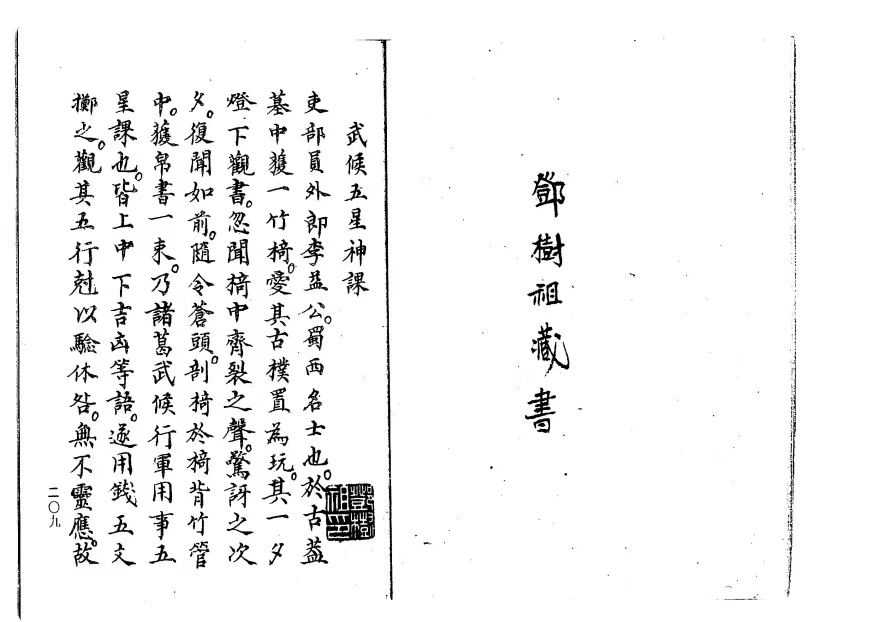 鄧樹祖藏書
武候五星神課
吏部員外郎李益公。蜀西名士也。於古葢
墓中獲一竹椅。愛其古樸置為玩。其一夕
燈下觀書。忽聞椅中齊裂之聲。驚訝之次
夕。復聞如前。隨令蒼頭剖椅於椅背竹管
中。獲帛書一束。乃諸葛武候行軍用事五
星課也。皆上中下吉凶等語。遂用錢五文
擲之。觀其五行尅以驗休咎。無不靈應。故
二〇九